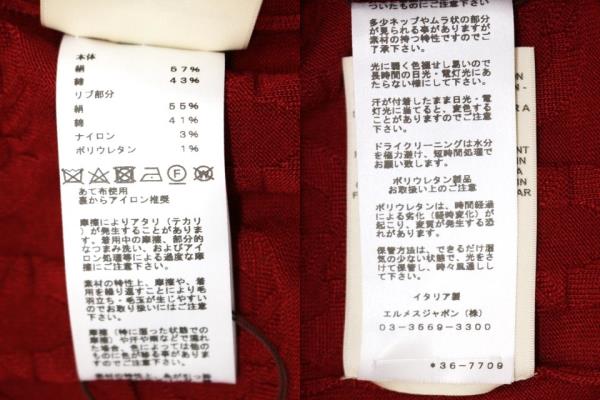 本体
絹 57%
綿 43%
リブ部分
絹 55%
綿 41%
ナイロン 3%
ポリウレタン 1%
あて布使用
裏からアイロン推奨
摩擦によりアタリ（テカリ
）が発生することがありま
す。着用中の摩擦、部分的
なつまみ洗い、およびアイ
ロン処理等による過度な摩
擦にご注意下さい。
素材の特性上、摩擦や、着
用を繰り返すことにより毛
羽立ち・毛玉が生じやすい
のでお取り扱いにはご注意
下さい。
摩擦（特に湿った状態での
摩擦）や汗や雨などで濡れ
た場合、色によっては他の
ものに色が移る事がありま
すのでご注意下さい。
ついたものにご注意下さい
多少ネップやムラ状の部分
が見られる事がありますが
素材の持つ特性ですのでご
了承下さい。
光に弱く色褪せし易いので
長時間の日光・電灯光にあ
たらない様にして下さい。
汗が付着したまま日光・電
灯光に当てると、変色する
ことがありますのでご注意
下さい。
ドライクリーニングは水分
を極力避け、短時間処理で
お願い致します。
ポリウレタン製品
お取扱い上のご注意
ポリウレタンは、時間経過
による劣化（経時変化）が
起こり、変質が発生する恐
れがあります。
保管方法は、できるだけ湿
気の少ない状態で、光をさ
けて保管し、時々風通しし
て下さい。
イタリア製
エルメスジャポン（株）
03-3569-3300
*36-7709